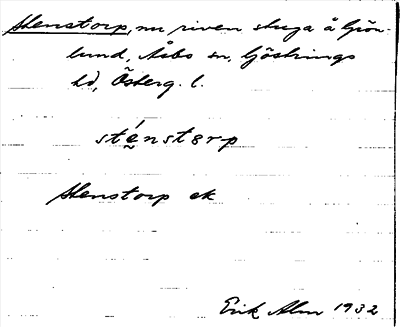 Stenstorp, nu riven stuga å Grön-
lund, Åsbo sn, Göstrings
hd, Österg. l.
sténstɵrp
Stenstorp ek
Erik Alm 1932